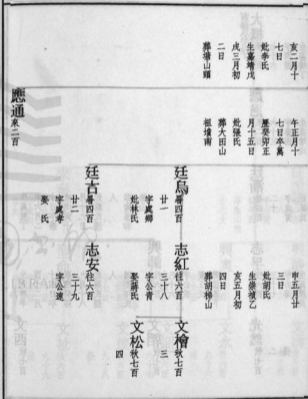 亥二月十
七日
妣李氏
生嘉靖戊
戌三月初
二日
葬塘山頭
午正月十
七日卒萬
歷癸卯正
月十五日
妣張氏
葬大田山
祖墳南
申五月廿
三日
妣胡氏
生崇禎乙
亥五月初
四日
葬胡梯山
應通來二百
廷烏暑四百
廿一
字虞卿
妣林氏
志紅往六百
三十八
字公青
娶蔣氏
文檜秋七百
三
文松秋七百
四
廷古暑四百
廿二
字虞孝
娶 氏
志安往六百
三十九
字公遠